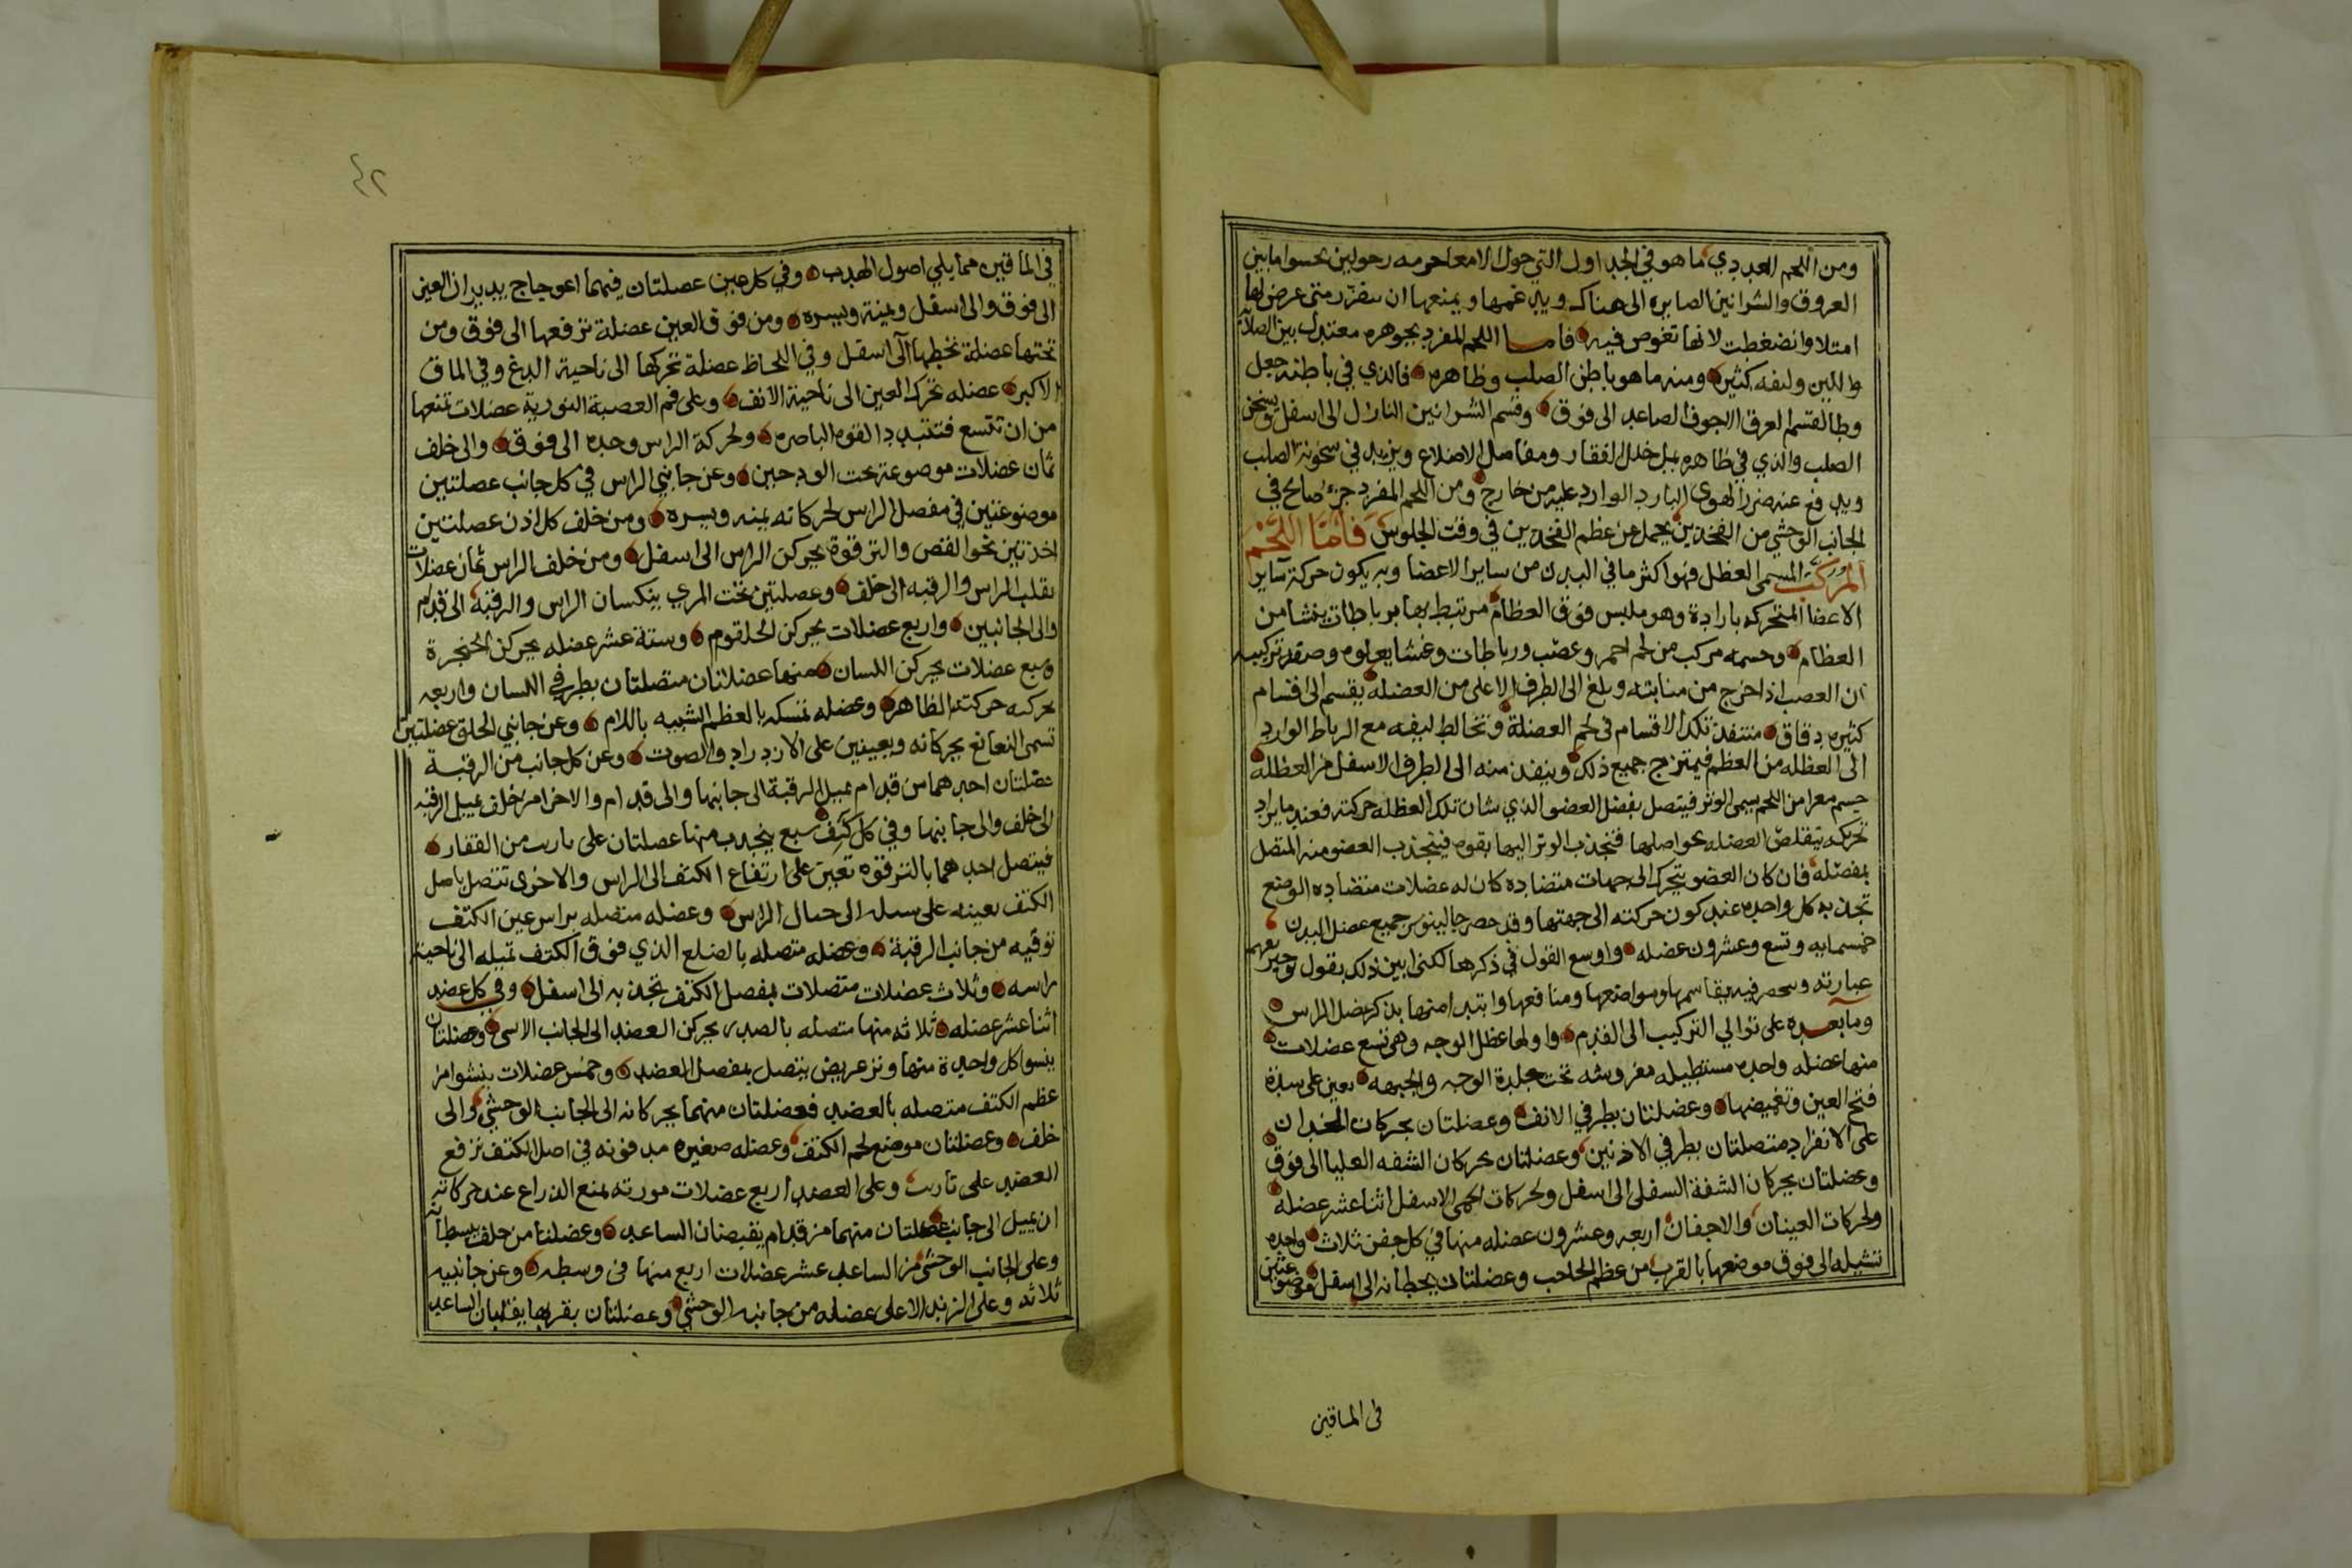 ومن اللحم الغددي ما هو في الجداول التي حول الامعا حرمه رحولين يحسوا مابين
العروق والشرانين الصايره الى هناك ويدغمها ويمنعها ان تتفزر متى عرض لها
امتلا وانضغطت لانها تغوص فيه فاما اللحم المفرد بجوهره معتدل بين الصلابة
واللين وليفه كثير ومنه ما هو باطن الصلب وظاهره فالذي في باطنه جعل
وطا لقسم العرق الاجوف الصاعد الى فوق وقسم الشرانين النازل الى اسفل ويسخن
الصلب والذي في ظاهره يملى خلل الفقار ومفاصل الاضلاع ويزيد في سخونة الصلب
ويدفع عنه ضرر الهوى البارد الوارد عليه من خارج ومن اللحم المفرد جزء صالح في
الجانب الوحشي من الفخدين يحمل عن عظم الفخدين في وقت الجلوس فاما اللحم
المركب المسمى العظل فهو اكثر ما في البدن من ساير الاعضا وبه يكون حركة ساير
الاعضا المتحركه بارادة وهو ملبس فوق العظام مرتبط بها برباطات ينشا من
العظام وجسمه مركب من لحم احمر وعصب ورباطات وغشا يعلوه وصفة تركيبه
ان العصب اذا خرج من منابته وبلغ الى الطرف الاعلى من العضله يقسم الى اقسام
كثيره دقاق متنفذ تلك الاقسام في لحم العضلة وتخالط ليفه مع الرباط الوارد
الى العظله من العظم فيمتزج جميع ذلك وينفذ منه الى الطرف الاسفل من العظله
جسم معرا من اللحم يسمى الوتر فيتصل بفضل العضو الذي شان تلك العظله حركته فعند ما يراد
تحركه يتقلص العضله نحو اصلها فتجذب الوتر اليها بقوه فينجذب العضو منه المتصل
بمفصله فان كان العضو يتحرك الى جهات متضاده كان له عضلات متضاده الوضع
تجذبه كل واحده عند كون حركته الى جهتها وقد حصر جالينوس جميع عضل البدن
خمسمايه وتسع وعشرون عضله واوسع القول في ذكرها لكني ابين ذلك بقول وجيز تفهم
عبارته وسحصر فيه بقاسمها ومواضعها ومنافعها وابتدا منها بذكر عضل الراس
وما بعده على توالي التركيب الى القدم واولها عظل الوجه وهي تسع عضلات
منها عضله واحده مستطيله مفروشه تحت جلدة الوجه والجبهه تعين على سدة
فتح العين وتغميضها وعضلتان بطرفي الانف وعضلتان يحركان الخدان
على الانفراد متصلتان بطرفي الاذنين وعضلتان يحركان الشفه العليا الى فوق
وعضلتان يحركان الشفة السفلى الى اسفل ولحركات اللحى الاسفل اثنا عشر عضله
ولحركات العينان والاجفان اربعه وعشرون عضله منها في كل جفن ثلاث واحده
تشيله الى فوق موضعها بالقرب من عظم الحاجب وعضلتان يحطانه الى اسفل موضوعتين
في الماقين
٤٢
في الماقين مما يلي اصول الهدب وفي كل عين عصلتان فيهما اعوجاج يديران العين
الى فوق والى اسفل ويمنة ويسره ومن فوق العين عضلة ترفعها الى فوق ومن
تحتها عضلة تحطها الى اسفل وفي اللحاظ عضلة تحركها الى ناحية الدغ وفي الماق
الاكبر عضله تحرك العين الى ناحية الانف وعلى فم العصبة النورية عضلات تمنعها
من ان تتسع فتتبدد القوه الباصره ولحركة الراس وحده الى فوق والى خلف
ثمان عضلات موصوعة تحت الودجين وعن جانبي الراس في كل جانب عصلتين
موضوعتين في مفصل الراس لحركاته يمنه ويسره ومن خلف كل اذن عصلتين
اخذتين نحو القص والترقوة يحركن الراس الى اسفل ومن خلف الراس ثمان عضلات
يقلب الراس والرقبه الى خلف وعصلتين تحت المري ينكسان الراس والرقبة الى قدام
والى الجانبين واربع عضلات يحركن الحلقوم وستة عشر عضله يحركن الحنجرة
وسبع عضلات يحركن اللسان منها عضلاتان متصلتان بطرفي اللسان واربعه
تحركه حركته الظاهر وعضله تمسكه بالعظم الشبيه باللام وعن جانبي الحلق عضلتين
تسمى النعانع يحركانه ويعينين على الازدراد والصوت وعن كل جانب من الرقبة
عضلتان احدهما من قدام يميل الرقبة الى جانبها والى قدام والاخرا من خلف يميل الرقبه
الى خلف والى جانبها وفي كل كتف سبع ينجدب منها عصلتان على باريب من الفقار
فيتصل احدهما بالترقوه تعين على ارتفاع الكتف الى الراس والاخرى تتصل باصل
الكتف بعينه على سىله الى حىال الراس وعضله متصله براس عين الكتف
توقيه من جانب الرقبة وعضله متصله بالضلع الذي فوق الكتف تميله الى ناحية
راسه وثلاث عضلات متصلات بمفصل الكتف تجذبه الى اسفل وفي كل عضد
اثنا عشر عضله ثلاثه منها متصله بالصدر يحركن العضد الى الجانب الاسي وعضلتان
ينسوا كل واحدة منها وتر عريض يتصل بمفصل العضد وخمس عضلات ينشوا من
عظم الكتف متصله بالعضد فعضلتان منهما يحركانه الى الجانب الوحشي والى
خلف وعضلتان موضع لحم الكتف وعضله صغيره مدفونه في اصل الكتف ترفع
العضد على تاريب وعلى العضد اربع عضلات مورته لمنع الذراع عند حركاته
ان يميل الى جانب عضلتان منهما من قدام يقبضان الساعد وعضلتا من خلف يبسطانه
وعلى الجانب الوحشي من الساعد عشر عضلات اربع منها في وسطه وعن جانبيه
ثلاثه وعلى الزند الاعلى عضله من جانبه الوحشي وعضلتان بقربها يقلبان الساعد